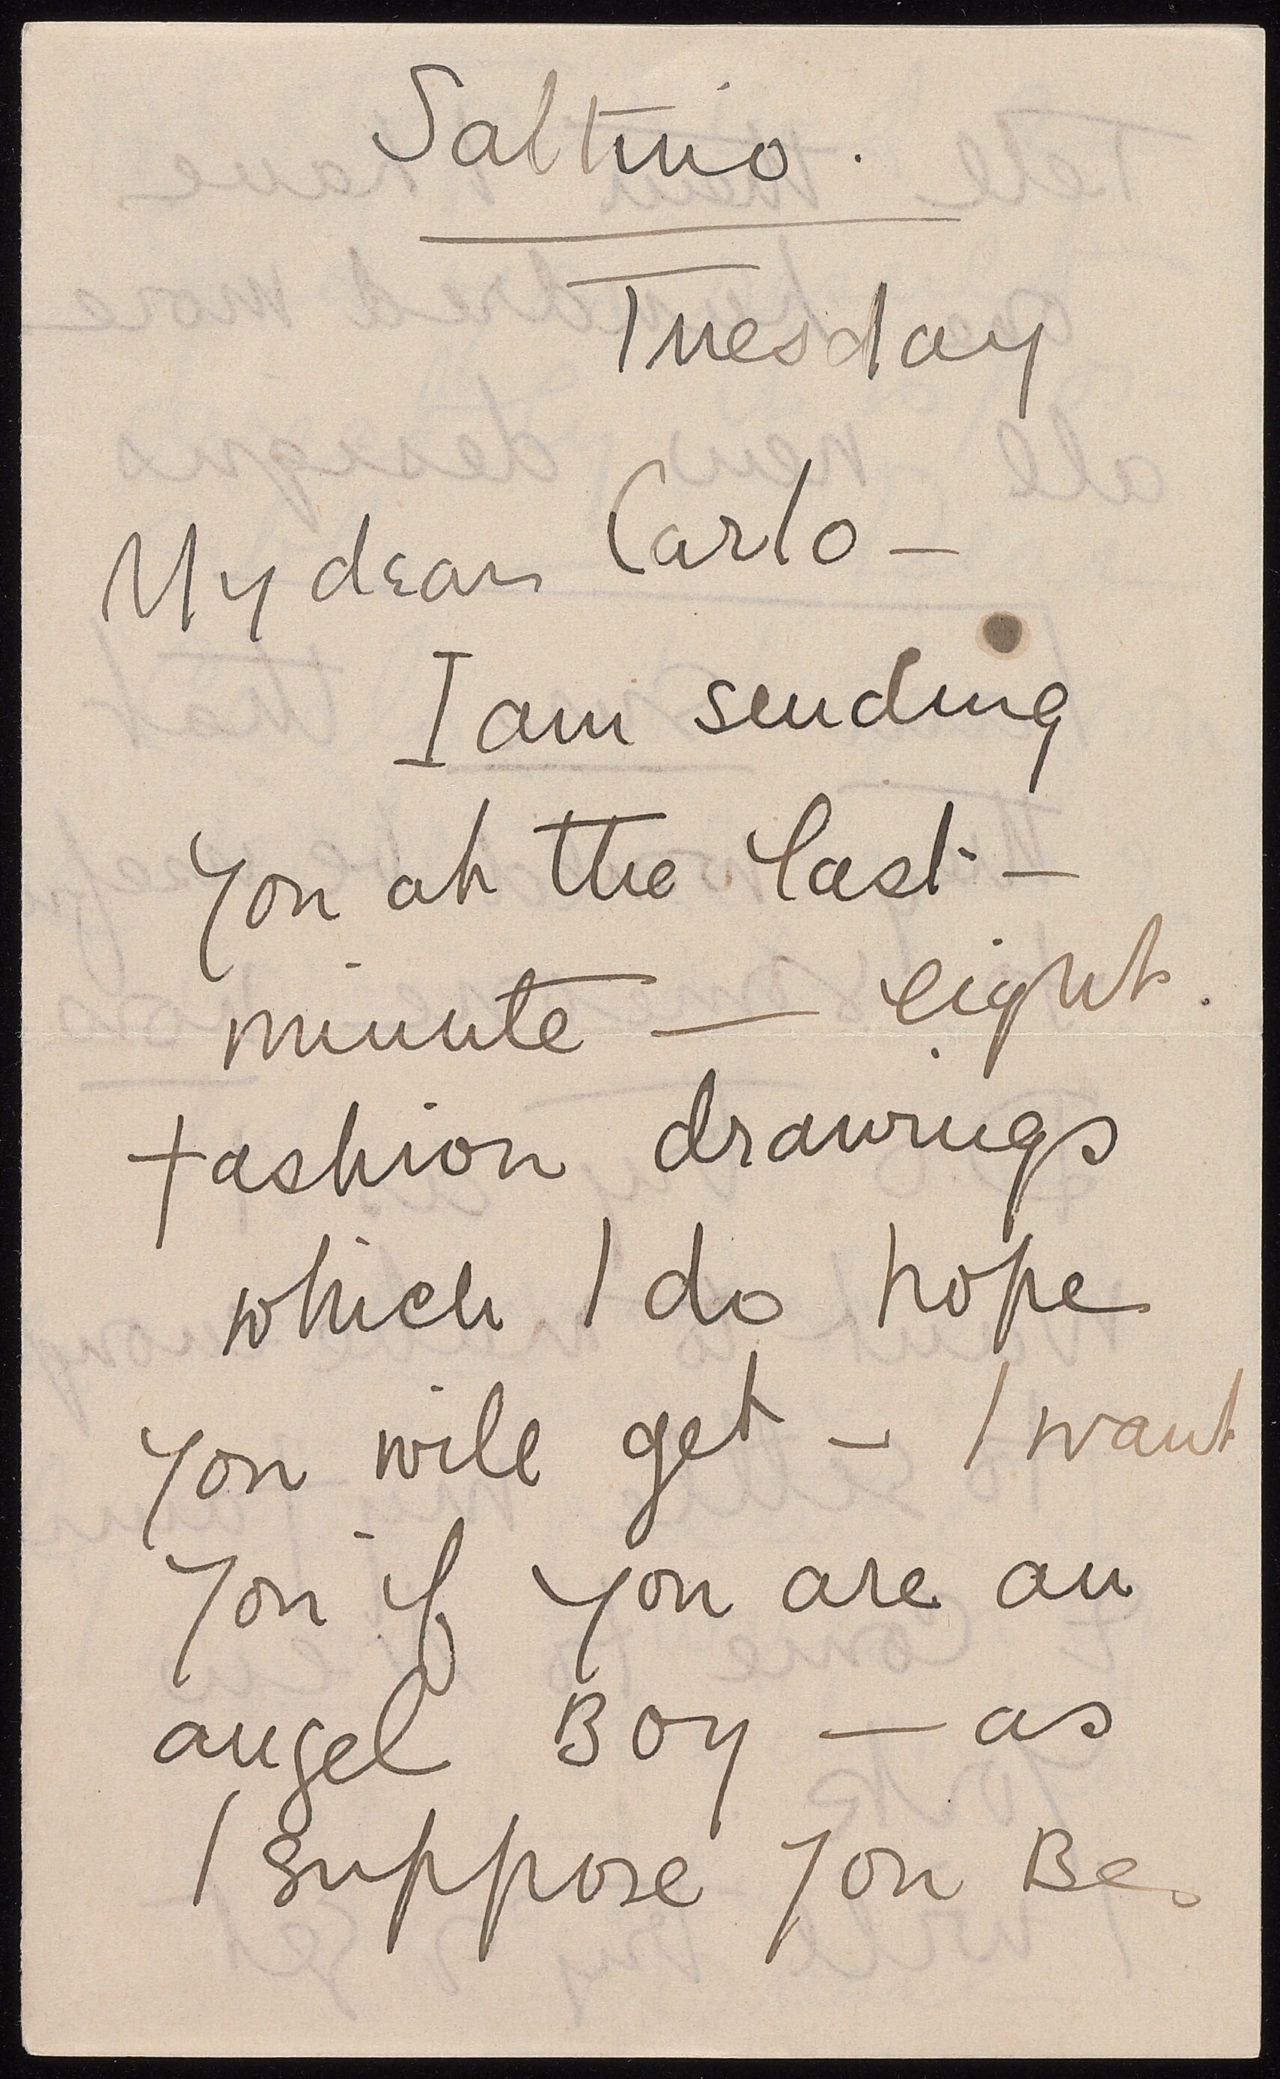 Saltino.
Tuesday
My dear Carlo —
I am sending
you at the last —
minute — eight
fashion drawings
which I do hope
you will get — I want
you if you are an
angel Boy — as
I suppose you Be